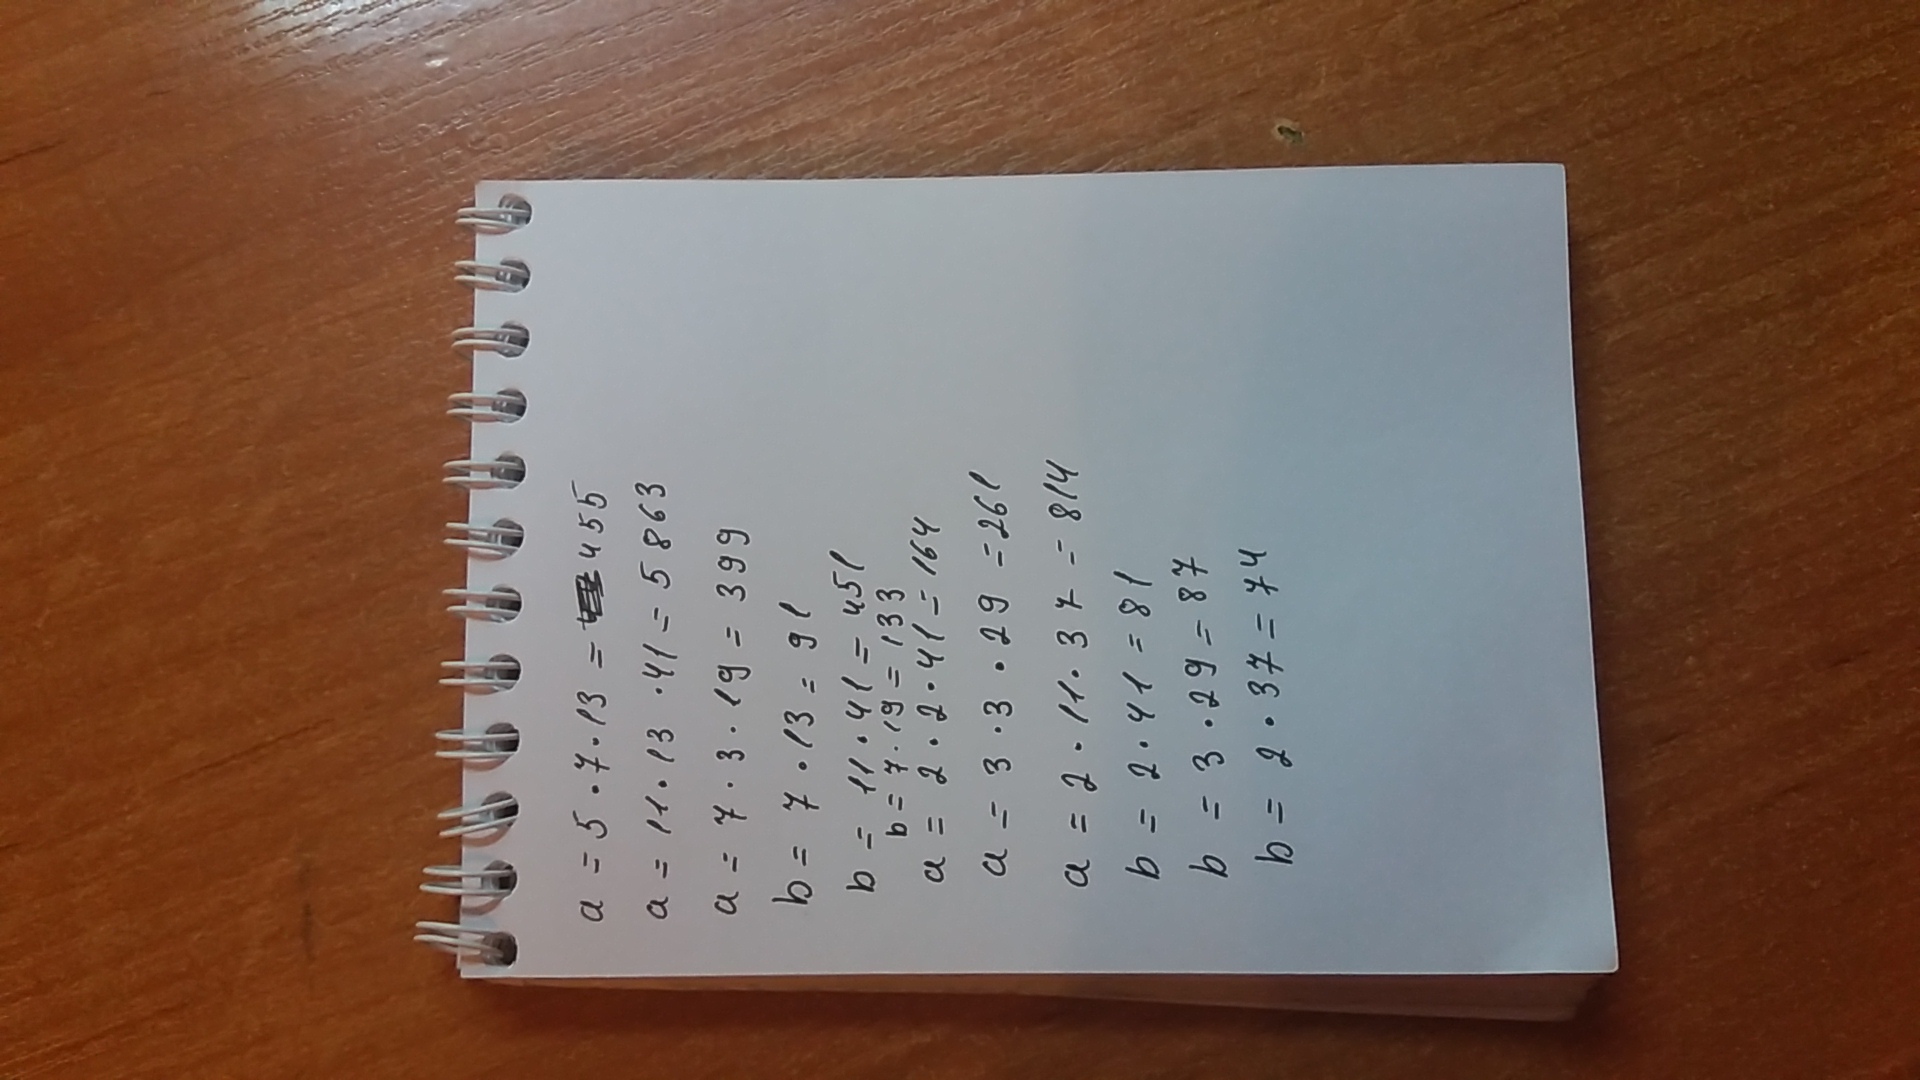 a = 5 · 7 · 13 = 455
a = 11 · 13 · 41 = 5863
a = 7 · 3 · 19 = 399
b = 7 · 13 = 91
b = 11 · 41 = 451
b = 7 · 19 = 133
a = 2 · 2 · 41 = 164
a = 3 · 3 · 29 = 261
a = 2 · 11 · 37 = 814
b = 2 · 41 = 81
b = 3 · 29 = 87
b = 2 · 37 = 74